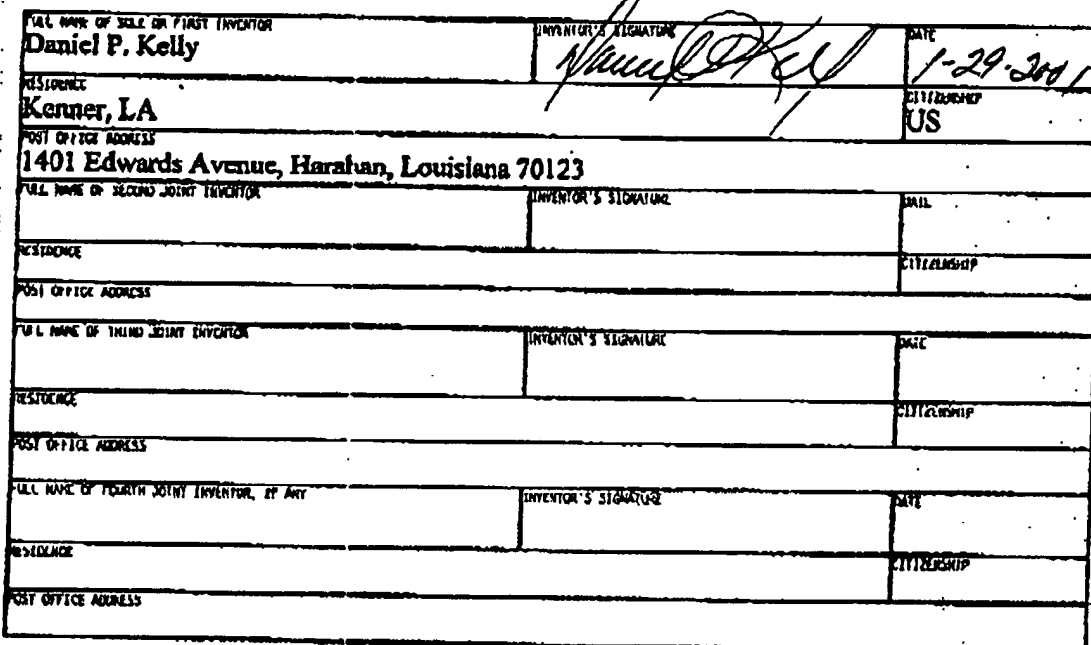 FULL NAME OF SOLE OR FIRST INVENTOR INVENTOR'S SIGNATURE DATE
Daniel P. Kelly Daniel P Kelly 1-29-2001
RESIDENCE CITIZENSHIP
Kenner, LA US
POST OFFICE ADDRESS
1401 Edwards Avenue, Harahan, Louisiana 70123
FULL NAME OF SECOND JOINT INVENTOR INVENTOR'S SIGNATURE DATE
RESIDENCE CITIZENSHIP
POST OFFICE ADDRESS
FULL NAME OF THIRD JOINT INVENTOR INVENTOR'S SIGNATURE DATE
RESIDENCE CITIZENSHIP
POST OFFICE ADDRESS
FULL NAME OF FOURTH JOINT INVENTOR, IF ANY INVENTOR'S SIGNATURE DATE
RESIDENCE CITIZENSHIP
POST OFFICE ADDRESS